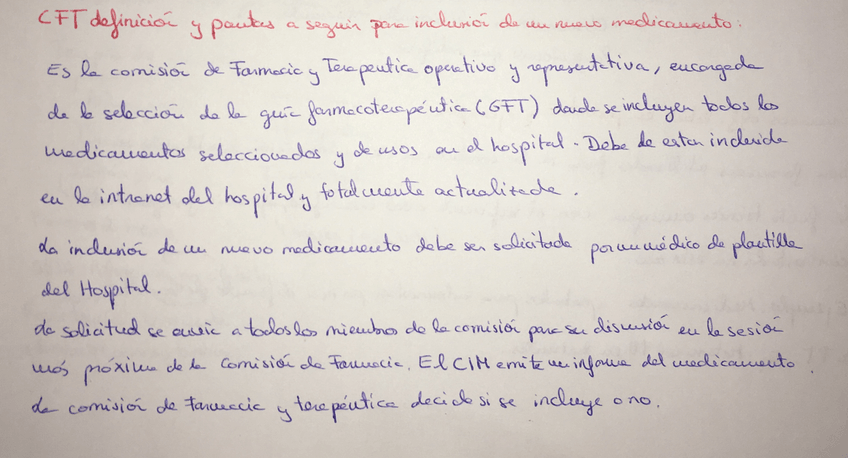 CFT definición y pautas a seguir para inclusión de un nuevo medicamento:
Es la comisión de Farmacia y Terapeutica operativo y representativa, encargada
de la selección de la guía farmacoterapéutica (GFT) donde se incluyen todos los
medicamentos seleccionados y de usos en el hospital. Debe de estar incluida
en la intranet del hospital y totalmente actualizada.
La inclusión de un nuevo medicamento debe ser solicitada por un médico de plantilla
del Hospital.
La solicitud se envía a todos los miembros de la comisión para su discusión en la sesión
más próxima de la Comisión de Farmacia. El CIM emite un informe del medicamento.
La comisión de Farmacia y terapéutica decide si se incluye o no.